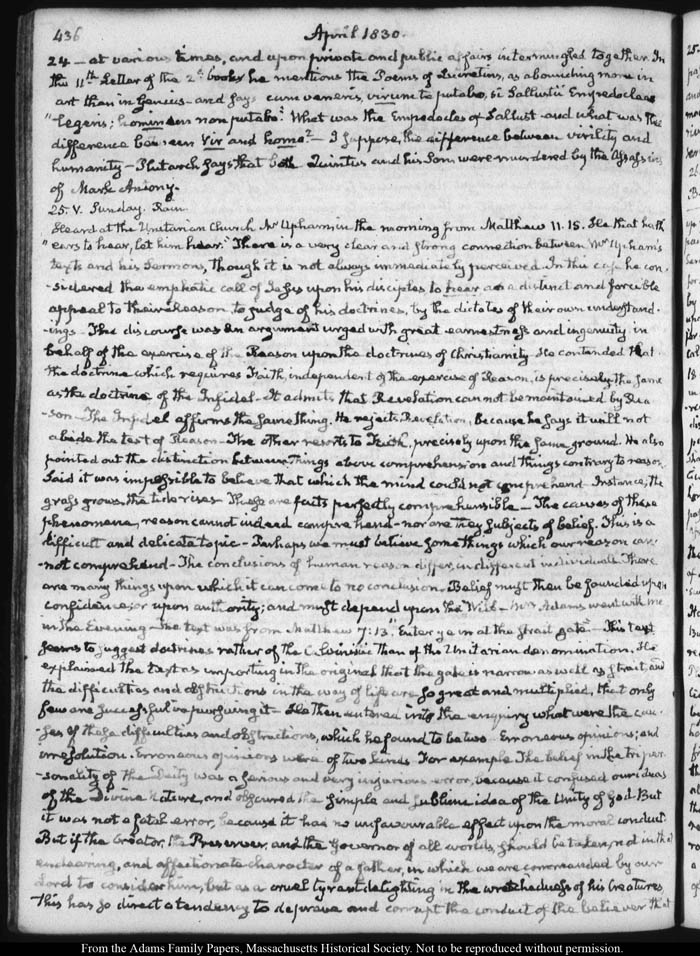 436
April 1830.
24 — at various times, and upon private and public affairs intermingled together. In
the 11th Letter of the 2d book he mentions the Poems of Lucretius, as abounding more in
art than in Genius — and says cum veneris, virum te putabo, si Sallustii Empedoclea
"legeris; hominem non putabo." What was the Empedocles of Sallust and what was the
difference between Vir and homo? — I suppose, the difference between virility and
humanity — Plutarch says that both Quintus and his Son were murdered by the Assassins
of Mark Antony.
25. V. Sunday. Rain.
Heard at the Unitarian Church Mr Upham, in the morning from Matthew 11. 15. He that hath
"ears to hear, let him hear." There is a very clear and strong connection between Mr Upham's
texts and his Sermons, though it is not always immediately perceived. In this case he con-
-sidered the emphatic call of Jesus upon his disciples to hear as a distinct and forcible
appeal to their Reason to judge of his doctrines, by the dictates of their own understand-
-ings — The discourse was an argument urged with great earnestness and ingenuity in
behalf of the exercise of the Reason upon the doctrines of Christianity He contended that
the doctrine which requires Faith, independent of the exercise of Reason, is precisely the same
as the doctrine of the Infidel — It admits that Revelation cannot be maintained by Rea
-son — The Infidel affirms the same thing. He rejects Revelation, because he says it will not
abide the test of Reason — The other resorts to Faith, precisely upon the same ground. He also
pointed out the distinction between things above comprehension and things contrary to reason
Said it was impossible to believe that which the mind could not comprehend Instance, the
grass grows, the tide rises These are facts perfectly comprehensible — The causes of these
phenomena, reason cannot indeed comprehend — nor are they subjects of belief. This is a
difficult and delicate topic — Perhaps we must believe some things which our reason can-
-not comprehend — The conclusions of human reason differ, in different individuals. There
are many things upon which it can come to no conclusion. Belief must then be founded upon
confidence, or upon authority; and must depend upon the Will — Mrs Adams went with me
in the Evening — The text was from Matthew 7:13. "Enter ye in at the strait gate" — This text
seems to suggest doctrines rather of the Calvinistic than of the Unitarian denomination. He
explained the text as importing in the original that the gate is narrow as well as strait and
the difficulties and obstructions in the way of life are so great and multiplied, that only
few are successful in pursuing it — He then entered into the enquiry what were the cau-
-ses of these difficulties and obstructions, which he found to be two. Erroneous opinions; and
irresolution. Erroneous opinions were of two kinds For example The belief in the tri per-
-sonality of the Deity was a serious and very injurious error, because it confused our ideas
of the Divine Nature, and obscured the simple and sublime idea of the Unity of God But
it was not a fatal error, because it has no unfavourable effect upon the moral conduct
But if the Creator, the Preserver, and the Governor of all worlds should be taken, not in that
endearing, and affectionate character of a father, in which we are commanded by our
Lord to consider him, but as a cruel tyrant delighting in the wretchedness of his Creatures
This has so direct a tendency to deprave and corrupt the conduct of the believer that
From the Adams Family Papers, Massachusetts Historical Society. Not to be reproduced without permission.